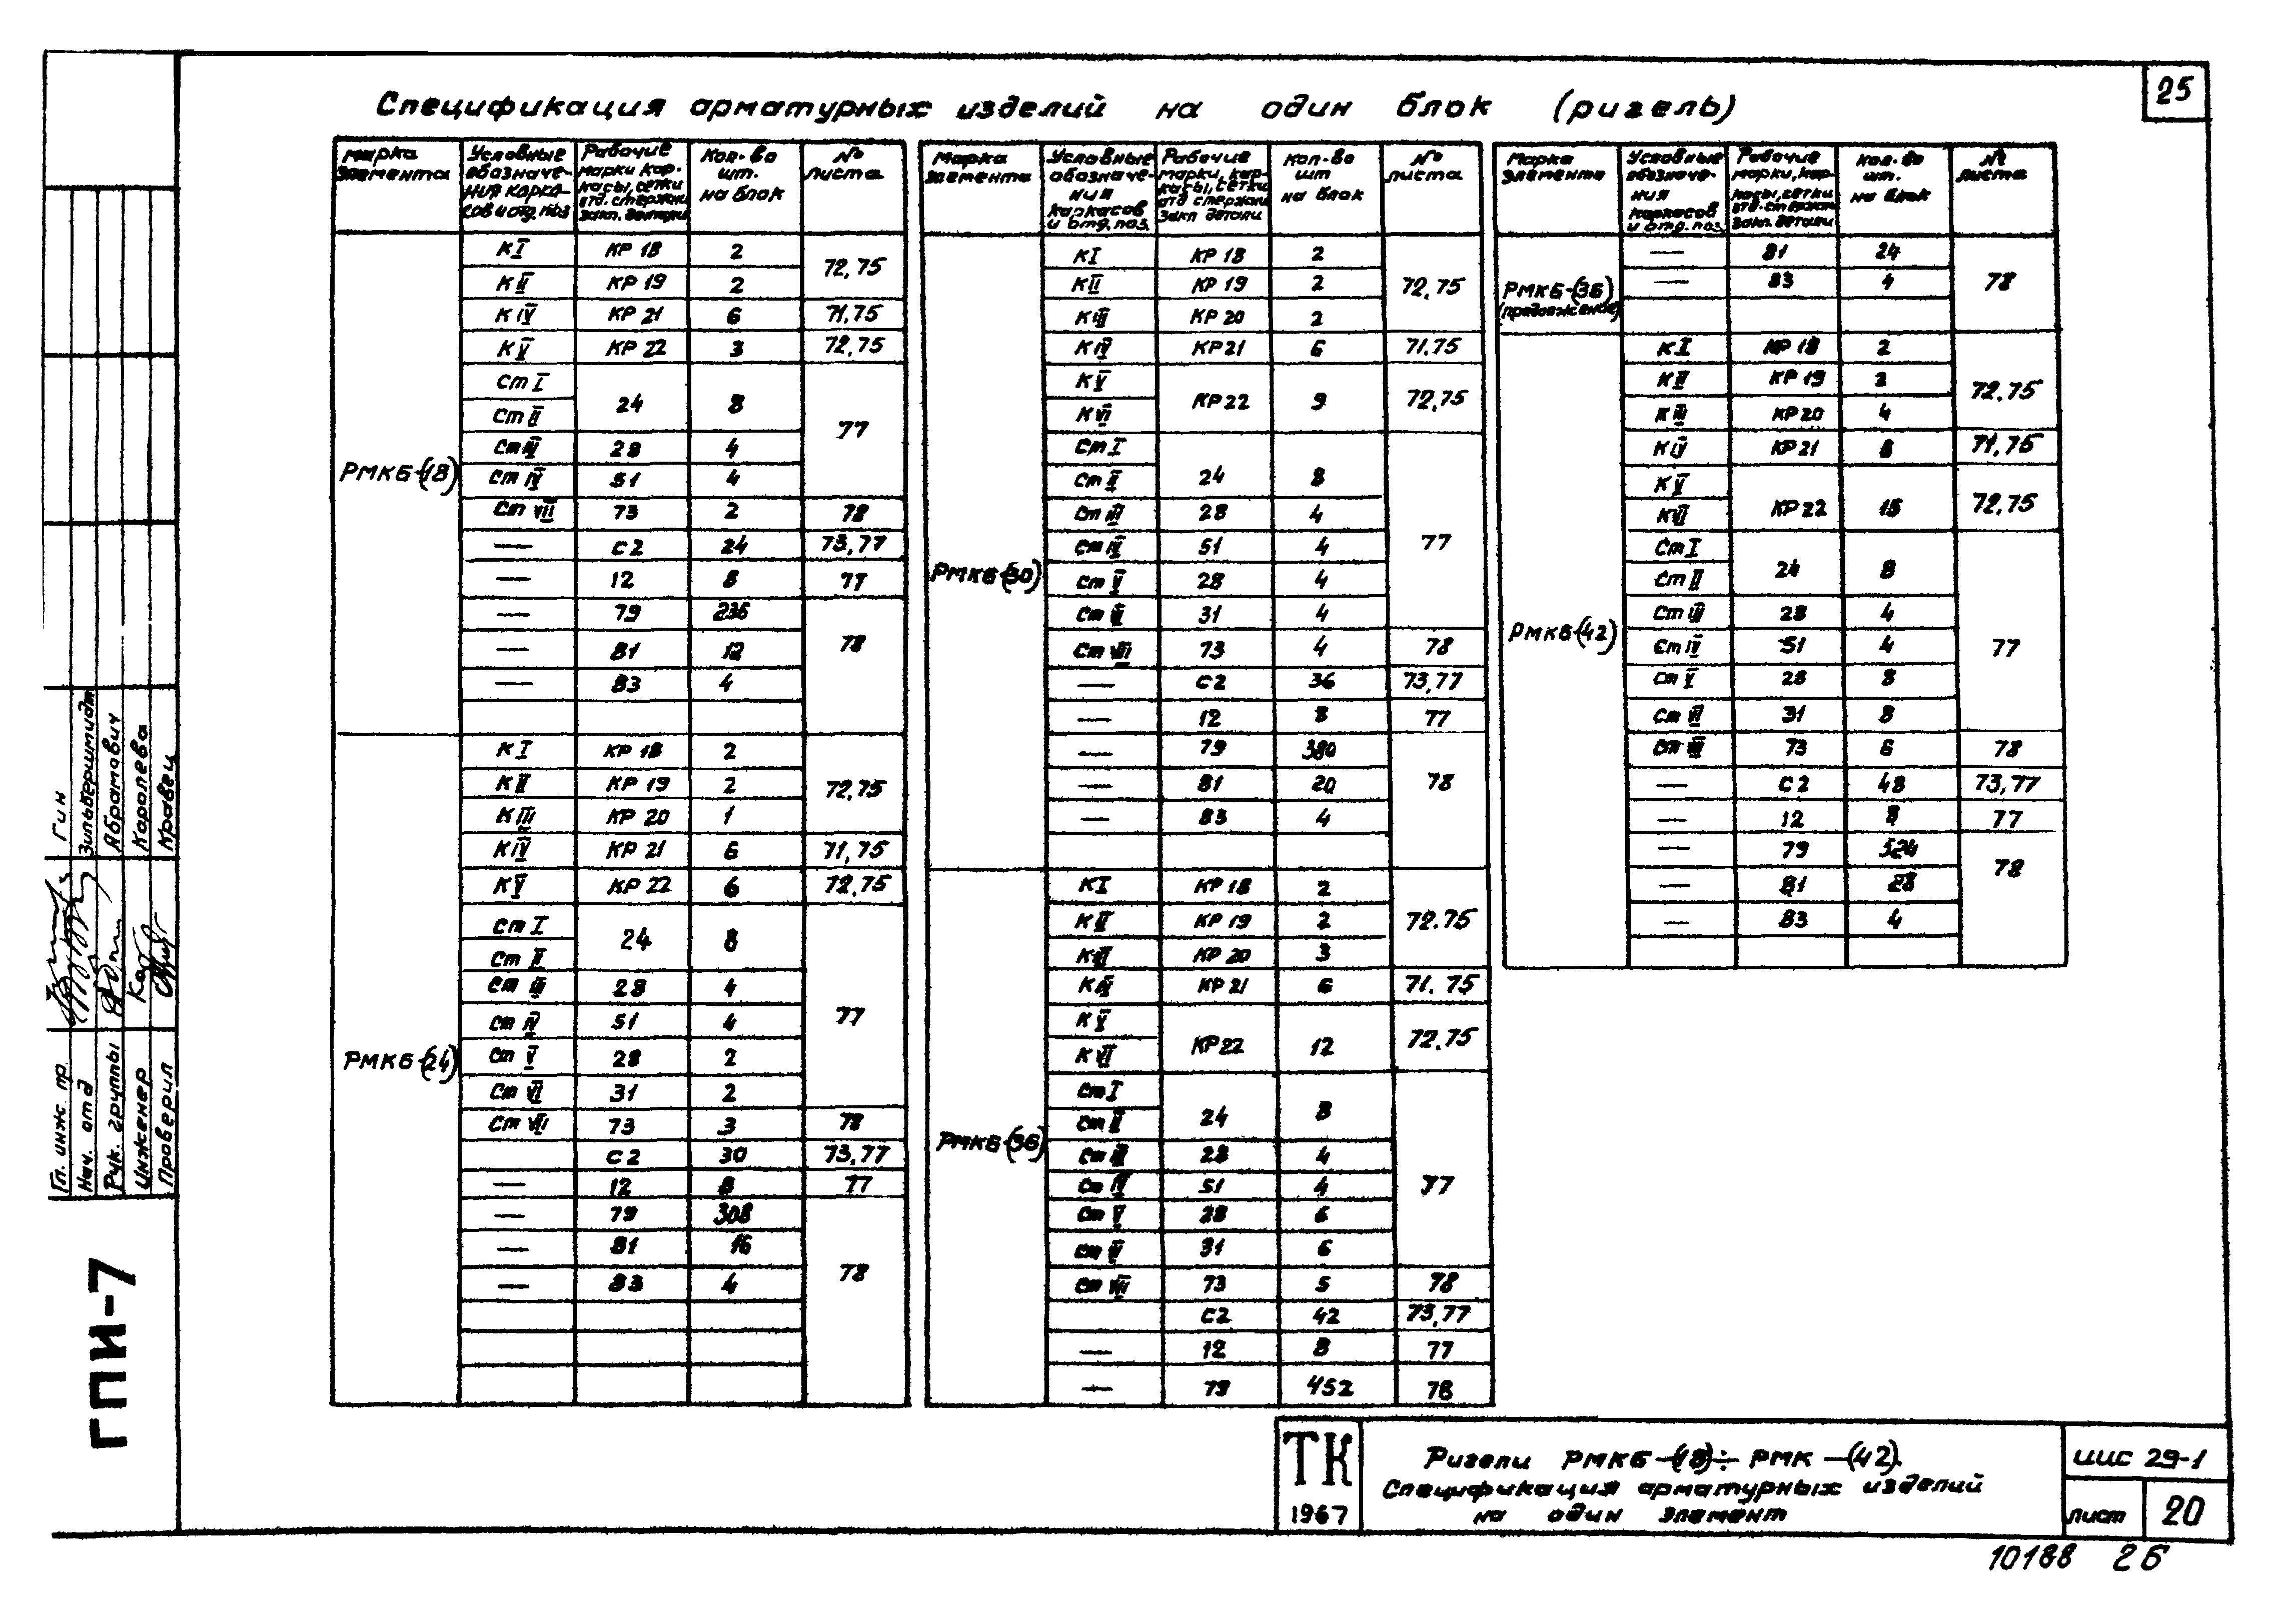 25
Спецификация арматурных изделий на один блок (ригель)
Марка элемента | Условные обозначения каркасов и отд. поз. | Рабочие марки кар-касы, сетки отд. стержни закл. детали | Кол-во шт. на блок | № листа
РМКБ-(18)
КI КР 18 2 72,75
КII КР 19 2
КIV КР 21 6 71,75
КV КР 22 3 72,75
Ст I 24 8 77
Ст II
Ст III 28 4
Ст IV 51 4
Ст VII 73 2 78
— С2 24 73,77
— 12 8 77
— 79 236 78
— 81 12
— 83 4
РМКБ-(24)
КI КР 18 2 72,75
КII КР 19 2
КIII КР 20 1
КIV КР 21 6 71,75
КV КР 22 6 72,75
Ст I 24 8 77
Ст II
Ст III 28 4
Ст IV 51 4
Ст V 28 2
Ст VI 31 2
Ст VII 73 3 78
С2 30 73,77
— 12 8 77
— 79 308 78
— 81 16
— 83 4
Марка элемента | Условные обозначения каркасов и отд. поз. | Рабочие марки, кар-касы, сетки отд стержни закл детали | Кол-во шт на блок | № листа
РМКБ-(30)
КI КР 18 2 72,75
КII КР 19 2
КIII КР 20 2
КIV КР 21 6 71,75
КV КР 22 9 72,75
КVI
Ст I 24 8 77
Ст II
Ст III 28 4
Ст IV 51 4
Ст V 28 4
Ст VI 31 4
Ст VII 73 4 78
— С2 36 73,77
— 12 8 77
— 79 380 78
— 81 20
— 83 4
РМКБ-(36)
КI КР 18 2 72.75
КII КР 19 2
КIII КР 20 3
КIV КР 21 6 71.75
КV КР 22 12 72.75
КVI
Ст I 24 8 77
Ст II
Ст III 28 4
Ст IV 51 4
Ст V 28 6
Ст VI 31 6
Ст VII 73 5 78
С2 42 73,77
— 12 8 77
— 79 452 78
Марка элемента | Условные обозначения каркасов и отд. поз. | Рабочие марки, кар-касы, сетки отд. стержни закл. детали | Кол-во шт. на блок | № листа
РМКБ-(36) (продолжение)
— 81 24 78
— 83 4
РМКБ-(42)
КI КР 18 2 72.75
КII КР 19 2
КIII КР 20 4
КIV КР 21 8 71,75
КV КР 22 15 72,75
КVI
Ст I 24 8 77
Ст II
Ст III 28 4
Ст IV 51 4
Ст V 28 8
Ст VI 31 8
Ст VII 73 6 78
— С2 48 73,77
— 12 8 77
— 79 524 78
— 81 28
— 83 4
Гл. инж. пр. Гин
Нач. отд Зильбершмидт
Рук. группы Абрамович
Инженер Королева
Проверил Кравец
ГПИ-7
ТК
1967
Ригели РМКБ-(18)÷ РМК-(42).
Спецификация арматурных изделий
на один элемент
ИИС 29-1
лист 20
10188 26